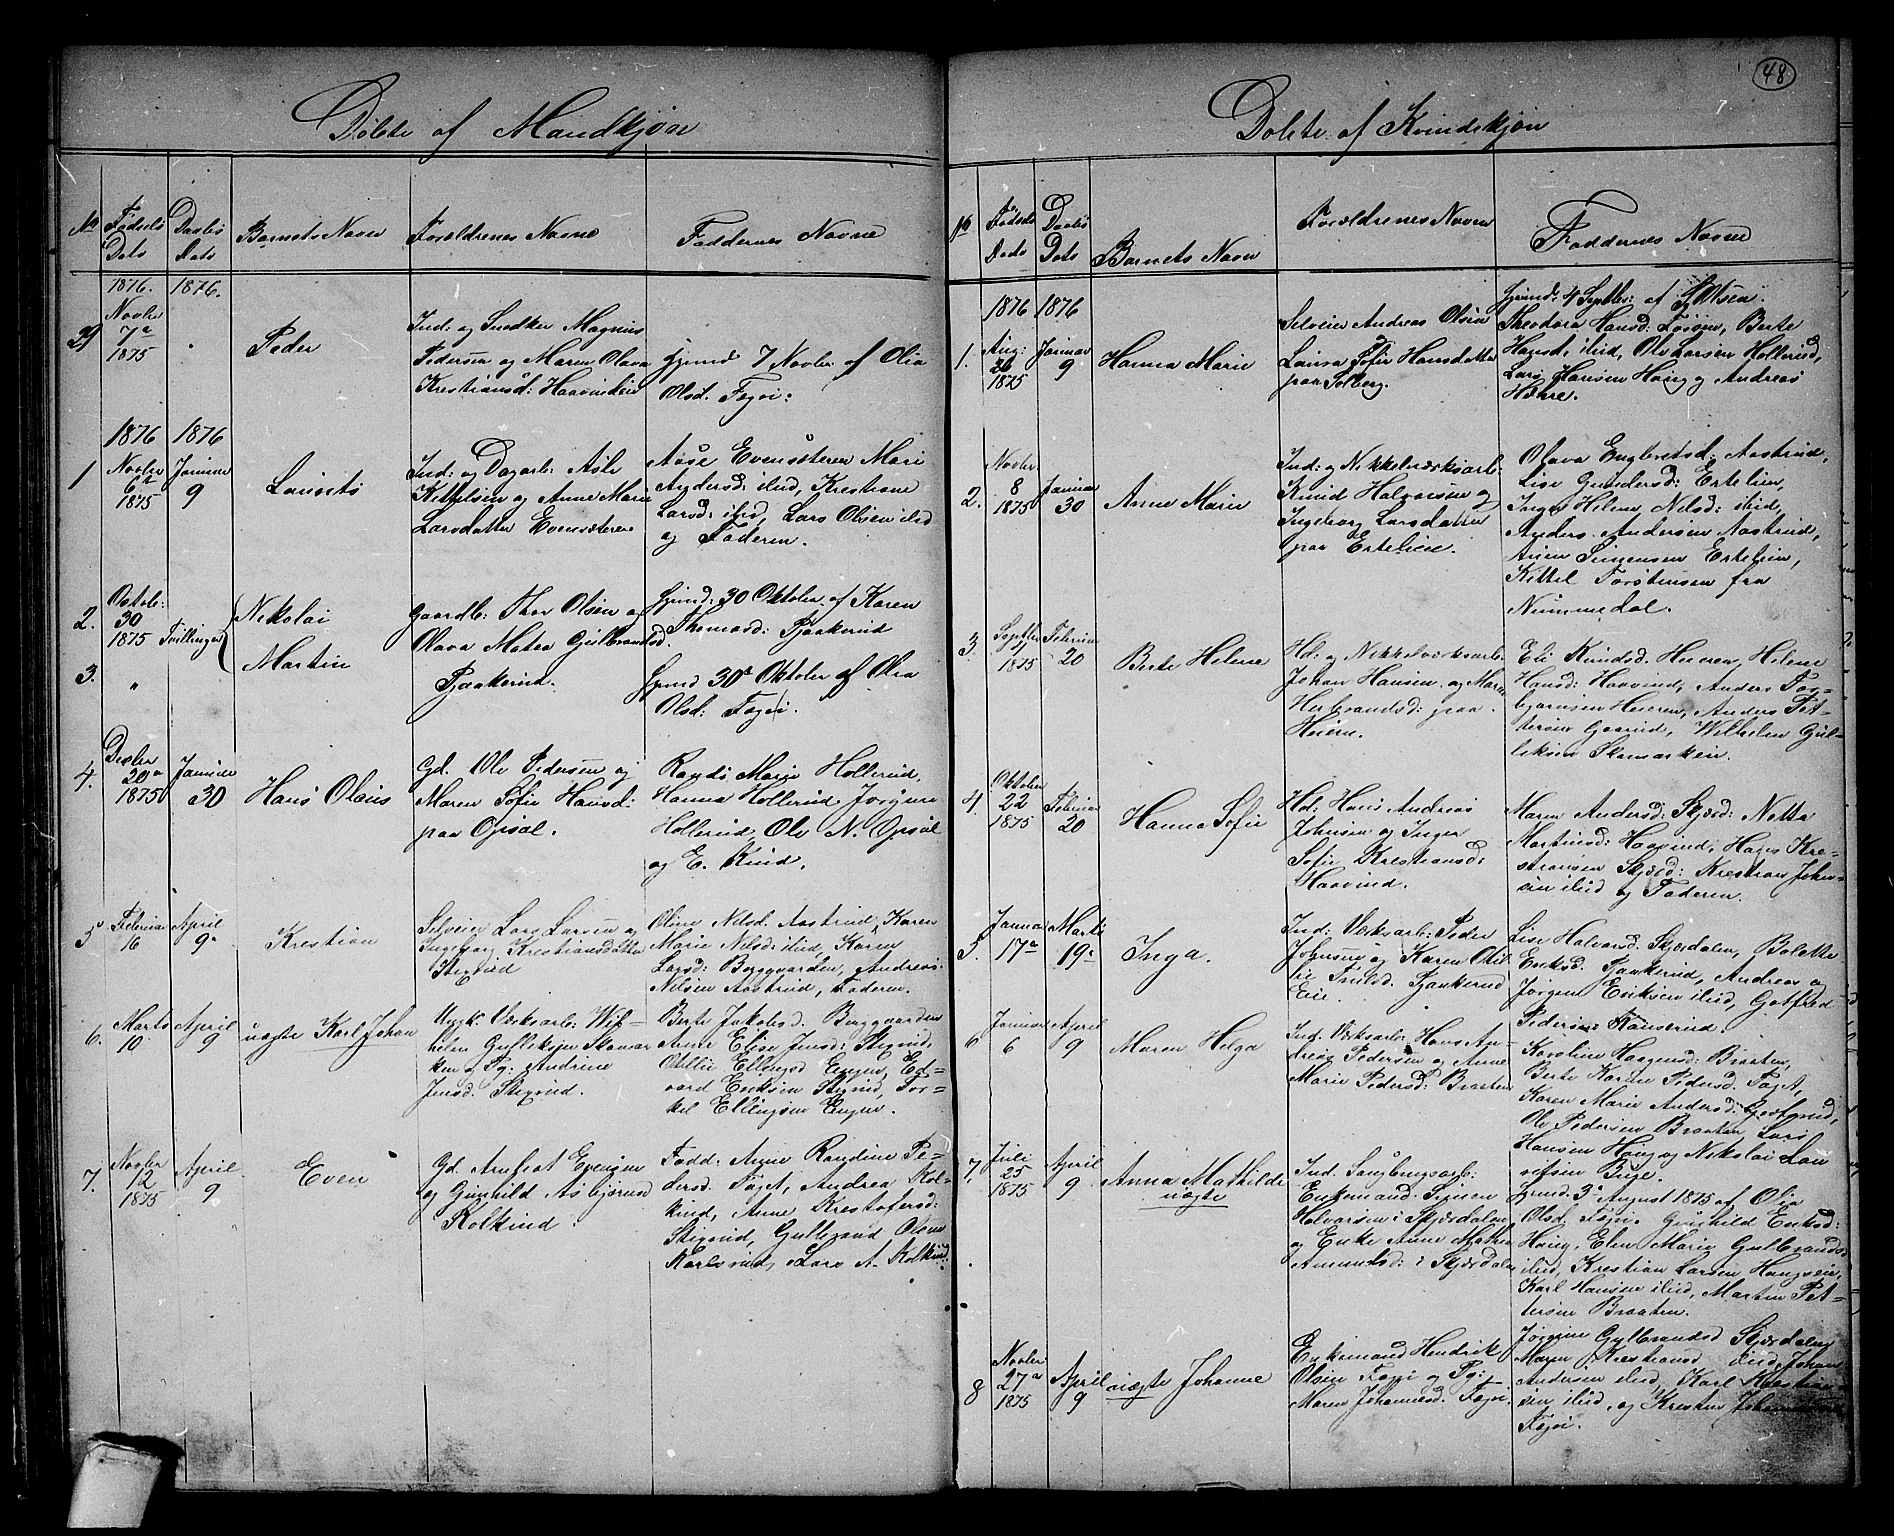 48
Döbte af Mandkjøn
No
Fødsels
Dato
Daabs
Dato
Barnets Navn
Forældrenes Navne
Faddernes Navne
1876. 1876.
29
Novbr
7de
1875
Peder
Ind: og Snedker Magnus
Pedersen og Maren Olava
Kristiansd: Haavindeie
Hjemd 7 Novbr. af Olia
Olsd. Fagvi:
1876 1876
1
Novbr
6te
1875
Januar
9
Laurits
Ind: og Dagarb: Asle
Kittelsen og Anne Marie
Larsdatter Evensæteren
Aase Evensæteren Mari
Andersd: ibid, Kristiane
Larsd: ibid, Lars Olsen ibid
og Faderen.
2.
3.
Octobr:
30
1875
"
Tvillinger
Nikolai
Martin
Gaardb: Thor Olsen og
Olava Matea Gulbrandsd.
Pjaakerud.
Hjemd: 30 Oktober af Karen
Thomasd: Pjaakerud
Hjemd 30te Oktober af Olia
Olsd: Fagvi.
4.
Decbr
20de
1875
Januar
30
Hans Olaus
Gd. Ole Pedersen og
Maren Sofie Hansd:
paa Opsal.
Randi Marie Hollerud,
Hanna Hollerud, Jørgine
Hollerud, Ole N. Opsal
og E. Ruud.
5
Februar
16
April
9.
Kristian
Selveier Lars Larsen og
Ingeborg Kristiansdatter
Stixrud
Oline Nilsd. Aastrud, Karen
Marie Nilsd: ibid, Karen
Larsd: Berggaarden, Andreas
Nilsen Aastrud, Faderen.
6.
Marts
10
April
9
uægte Karl Johan
Ugk. Værksarb: Wil-
helm Gulliksen Skamar
ken og Pg: Andrine
Jensd. Stixrud.
Berte Jakobsd. Berggaarden
Anne Elise Jensd: Stixrud,
Otillie Ellingsd Engen, Ed-
vard Eriksen Stixrud, Tor-
kel Ellingsen Engen.
7.
Novbr
12
1875
April
9
Even
Gd. Anfeat Evensen
og Gunhild Asbjørnsd
Kolkind.
Fadd: Anne Randine Pe-
dersd. Faget, Andrea Kol-
kind, Anne Kristofersd:
Stixrud, Gulbrand Olsen
Karlsrud, Lars A. Kolkind.
Döbte af Kvindekjøn
No
Fødsels
Dato
Daabs
Dato
Barnets Navn
Forældrenes Navne
Faddernes Navne
1876 1876
1.
Aug:
26
1875
Januar
9
Hanna Marie
Selveier Andreas Olsen
Laura Sofie Hansdatter
paa Solberg.
Hjemd: 4 Septbr: af J. Olsen.
Theodora Hansd: Fossen, Berte
Hansd. ibid, Ole Larsen Hollerud,
Lars Hansen Haug og Andreas
Hæhre.
2.
Novbr
8
1875
Januar
30
Anne Marie
Ind: og Nikkelværksarb:
Knud Halvorsen og
Ingeborg Larsdatter
paa Ertelien.
Olava Englebretsd: Aastrud,
Lise Gundersd: Ertelien,
Inger Helene Nilsd: ibid,
Anders Andersen Aastrud,
Arne Simensen Ertelien,
Kittel Torstensen fra
Nummedal.
3.
Septbr
11
1875
Februar
20
Berte Helene
Hd: og Nikkelværksarb:
Johan Hansen og Maren
Herbrandsd: paa
Heieren.
Eli Knudsd. Heieren, Helene
Hansd: Haavind, Anders Tor-
bjørnsen Heieren, Anders Pet-
tersen Gaarud, Wilhelm Gul-
liksen Skamarken.
4
Oktober
22
1875
Februar
20
Hanna Sofie
Hd: Hans Andreas
Johnsen og Inger
Sofie Kristiansd:
Haavind.
Maren Andersd: Skjæd: Netta
Martinsd: Haavind, Hans Kri-
stiansen Skjæd: Kristian John-
sen ibid og Faderen.
5.
Januar
17de
Marts
19.
Inga.
Ind: Værksarb: Peder
Johnsen og Karen Otil-
lie Truls. Pjaakerud
Eie.
Lise Halvorsd. Skjærdalen, Bolette
Eriksd. Pjaakerud, Andreas og
Jørgen Eriksen ibid, Gotfred
Pedersen Kanserud.
6
Januar
6
April
9
Maren Helga
Ind: Værksarb: Hans An-
dreas Pedersen og Anne
Marie Pedersd: Braaten
Karoline Haagensd: Braaten,
Berte Karine Pedersd. Faget,
Karen Marie Andersd:
Ole Pedersen Braaten Lars
Hansen Haug og Nikolai Lau
ritsen Buge.
7.
Juli
25
1875
April
9
Anna Mathilde
uægte
Ind. Sagbrugsarb:
Enkemand Simen
Halvorsen i Skjærdalen
og Enke Anne Mathea
Amundsd: i Skjærdalen
Hjemd. 3de August 1875 af Olia
Olsd. Fagvi. Gunhild Eriksd:
Haug, Elen Marie Gulbrandsd
ibid, Kristian Larsen Haugseie,
Karl Hansen ibid, Martin Pet-
tersen Braaten.
8
Novbr
27de
1875
April
9
uægte Johanne
Enkemand Hendrik
Olsen Fagvi og Pg:
Maren Johannesd. Fagvi.
Jørgine Gulbrandsd Skjærdalen
Maren Kristiansd ibid, Johan
Andersen ibid, Karl Kristian
sen ibid, og Kristen
Fagvi.